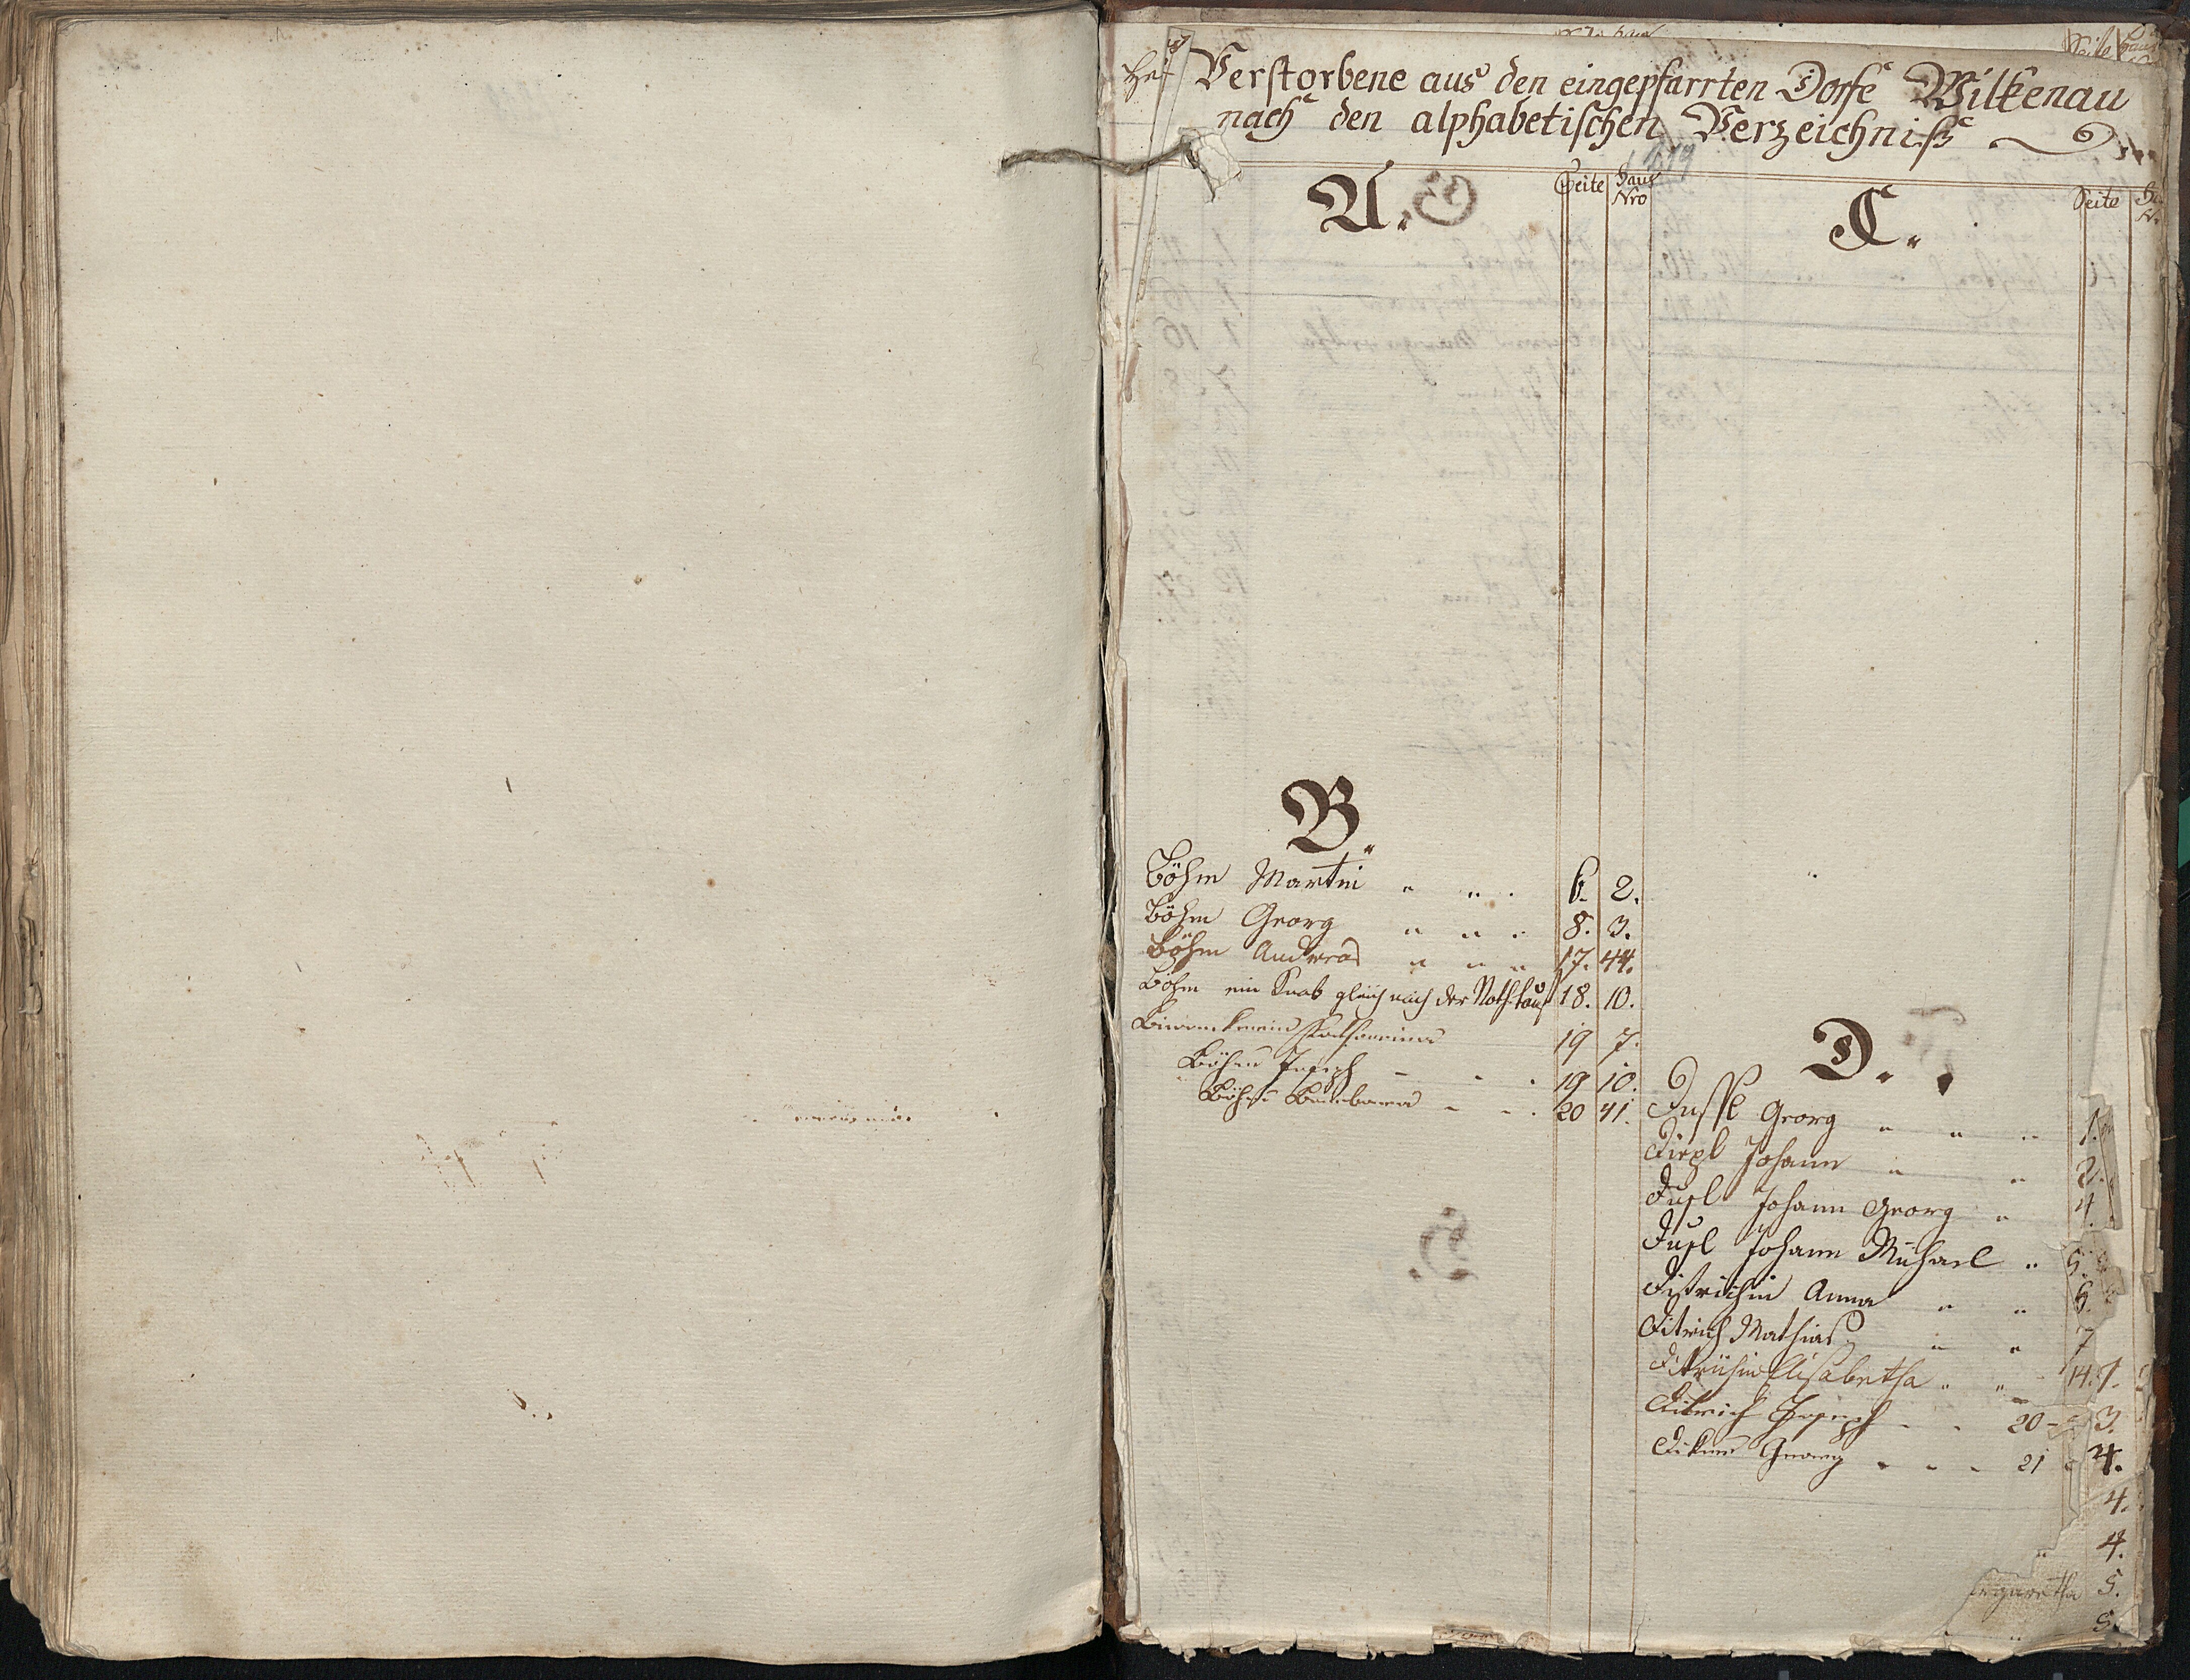 Verstorbene aus den eingepfarrten Dorfe Wilkenau
nach den alphabetischen Verzeichniß
A.
Seite Haus Nro
B.
Böhm Martin 6. 2.
Böhm Georg 8. 3.
Böhm Andreas 17. 44.
Böhm ein Knab gleich nach der Nothtauf 18. 10.
Katharina 19 7.
Böhm Joseph 19 10.
Böhm Barbara 20 41.
C.
Seite
D.
Dussl Georg 1.
Johann 2.
Dusl Johann Georg 4.
Dusl Johann Michael 5.
Ditrichin Anna 6.
Ditrich Mathias 7
Ditrichin Elisabetha 14. 1.
Ditrich Joseph 20 3.
Georg 21 4.
4.
4.
5.
5.